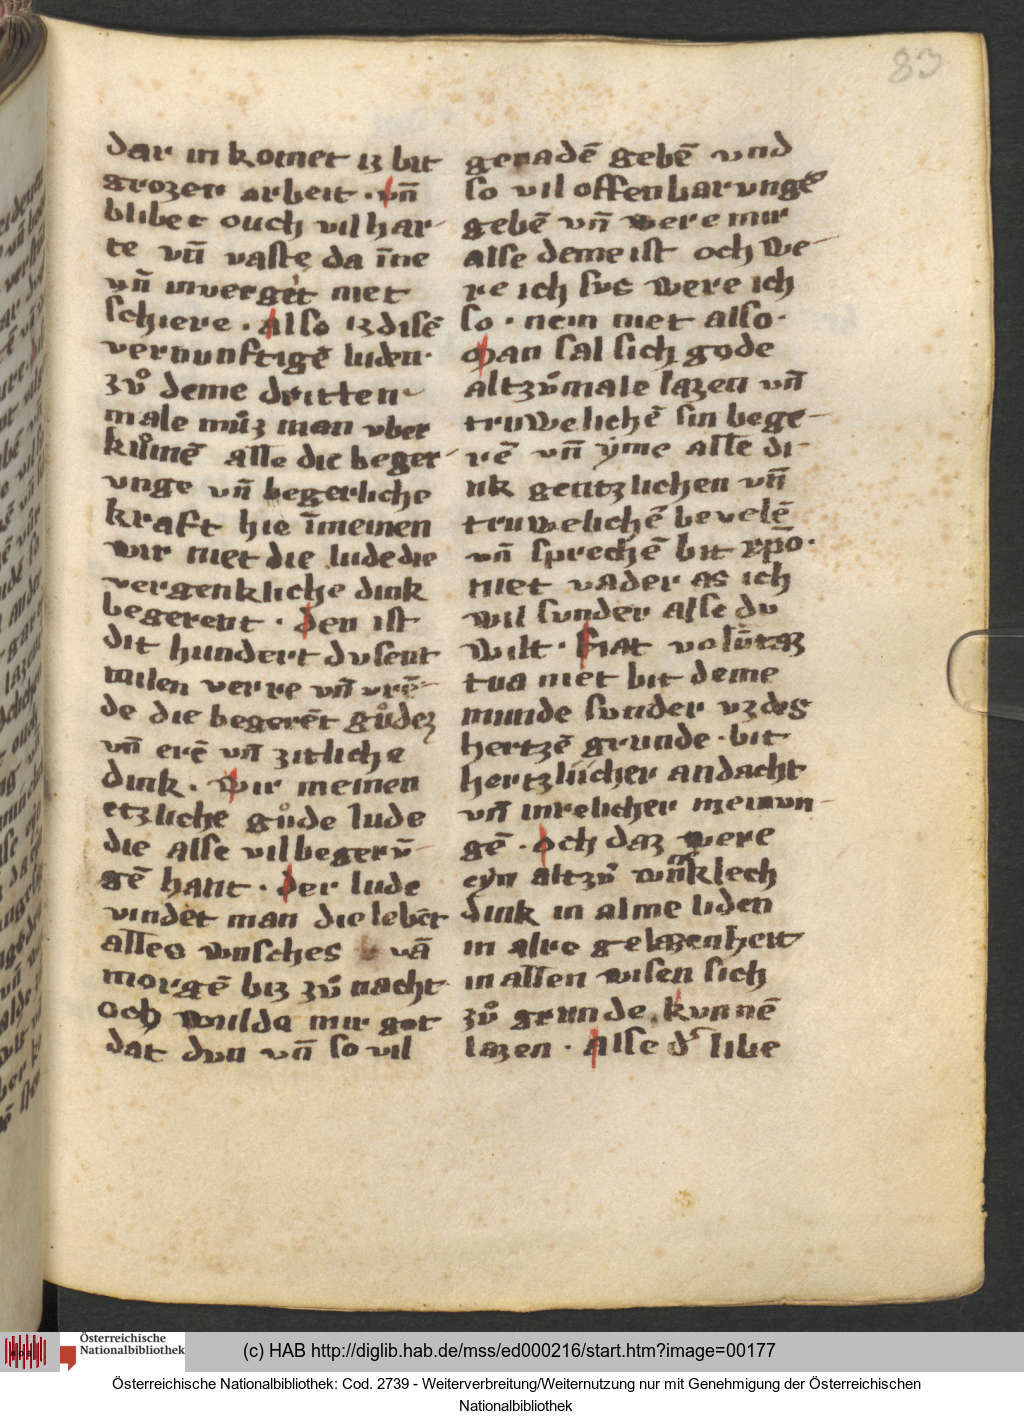 83
dar in komet iz bit
grozer arbeit · vn̄
blibet ouch vil har
te vn̄ vaste da īne
vn̄ in verget niet
schiere · also iz disē
vernunftigē luden·
zuͦ deme dritten
male muͦz man vber
kumē alle die beger
unge vn̄ begerliche
kraft hie īmeinen
wir niet die lude die
vergenkliche dink
begerent · den ist
dit hundert dusent
milen verre vn̄ vrē
de die begerēt guͦdez
vn̄ erē vn̄ zitliche
dink · wir meinen
etzliche guͦde lude
die alse vil begerv̄
gē hant · der lude
vindet man die lebēt
alles wnsches vā
morgē biz zuͦ nacht
och wulde mir got
dat dun vn̄ so vil
genadē gebē vnd
so vil offenbarungē
gebē vn̄ were mir
alse deme ist och we
re ich sus were ich
so · nein niet also·
man sal sich gode
altzuͦmale lazen vn̄
truwelichē sin bege
rē vn̄ yme alle di
nk gentzlichen vn̄
truwelichē bevelē
vn̄ sprechē bit xp̄o·
niet vader as ich
wil sunder alse du
wilt · fiat volūtaz
tua niet bit deme
munde sunder vz des
hertzē grunde · bit
hertzlicher andacht
vn̄ inrelicher meinun
gē · och daz were
eyn altzuͦ wūsklech
dink in alme liden
in alre gelazenheit
in allen wisen sich
zuͦ grunde kunnē
lazen · alse d' libe
Österreichische
Nationalbibliothek
(c) HAB http://diglib.hab.de/mss/ed000216/start.htm?image=00177
Österreichische Nationalbibliothek: Cod. 2739 - Weiterverbreitung/Weiternutzung nur mit Genehmigung der Österreichischen
Nationalbibliothek